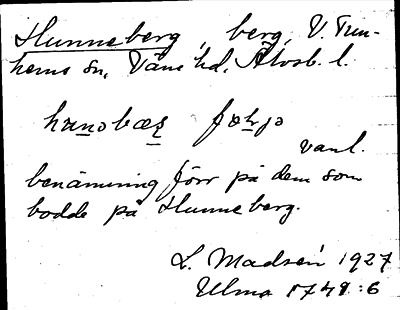 Hunneberg, berg, V. Tun-
hems sn, Väne hd, Älvsb. l.
vanl.
benämning förr på dem som
bodde på Hunneberg.
L. Madsén 1927
Ulma 1748:6